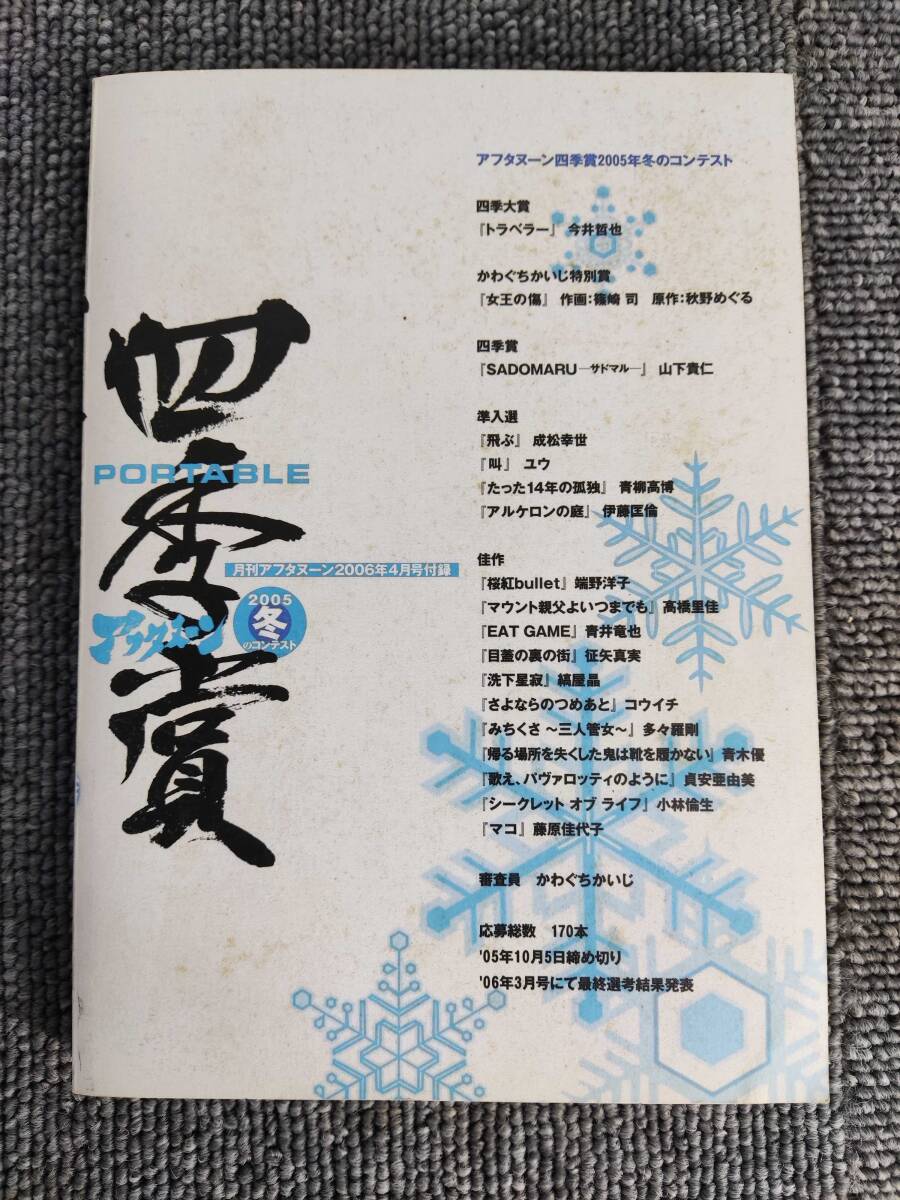 四季賞
PORTABLE
月刊アフタヌーン2006年4月号付録
アフタヌーン
2005
冬
のコンテスト
アフタヌーン四季賞2005年冬のコンテスト
四季大賞
『トラベラー』 今井哲也
かわぐちかいじ特別賞
『女王の傷』 作画:篠崎 司 原作:秋野めぐる
四季賞
『SADOMARU―サドマル―』 山下貴仁
準入選
『飛ぶ』 成松幸世
『叫』 ユウ
『たった14年の孤独』 青柳高博
『アルケロンの庭』 伊藤匡倫
佳作
『桜紅bullet』端野洋子
『マウント親父よいつまでも』高橋里佳
『EAT GAME』青井竜也
『目蓋の裏の街』征矢真実
『洗下星寂』縞屋晶
『さよならのつめあと』コウイチ
『みちくさ ～三人管女～』多々羅剛
『帰る場所を失くした鬼は靴を履かない』青木優
『歌え、パヴァロッティのように』貞安亜由美
『シークレット オブ ライフ』小林倫生
『マコ』藤原佳代子
審査員 かわぐちかいじ
応募総数 170本
'05年10月5日締め切り
'06年3月号にて最終選考結果発表